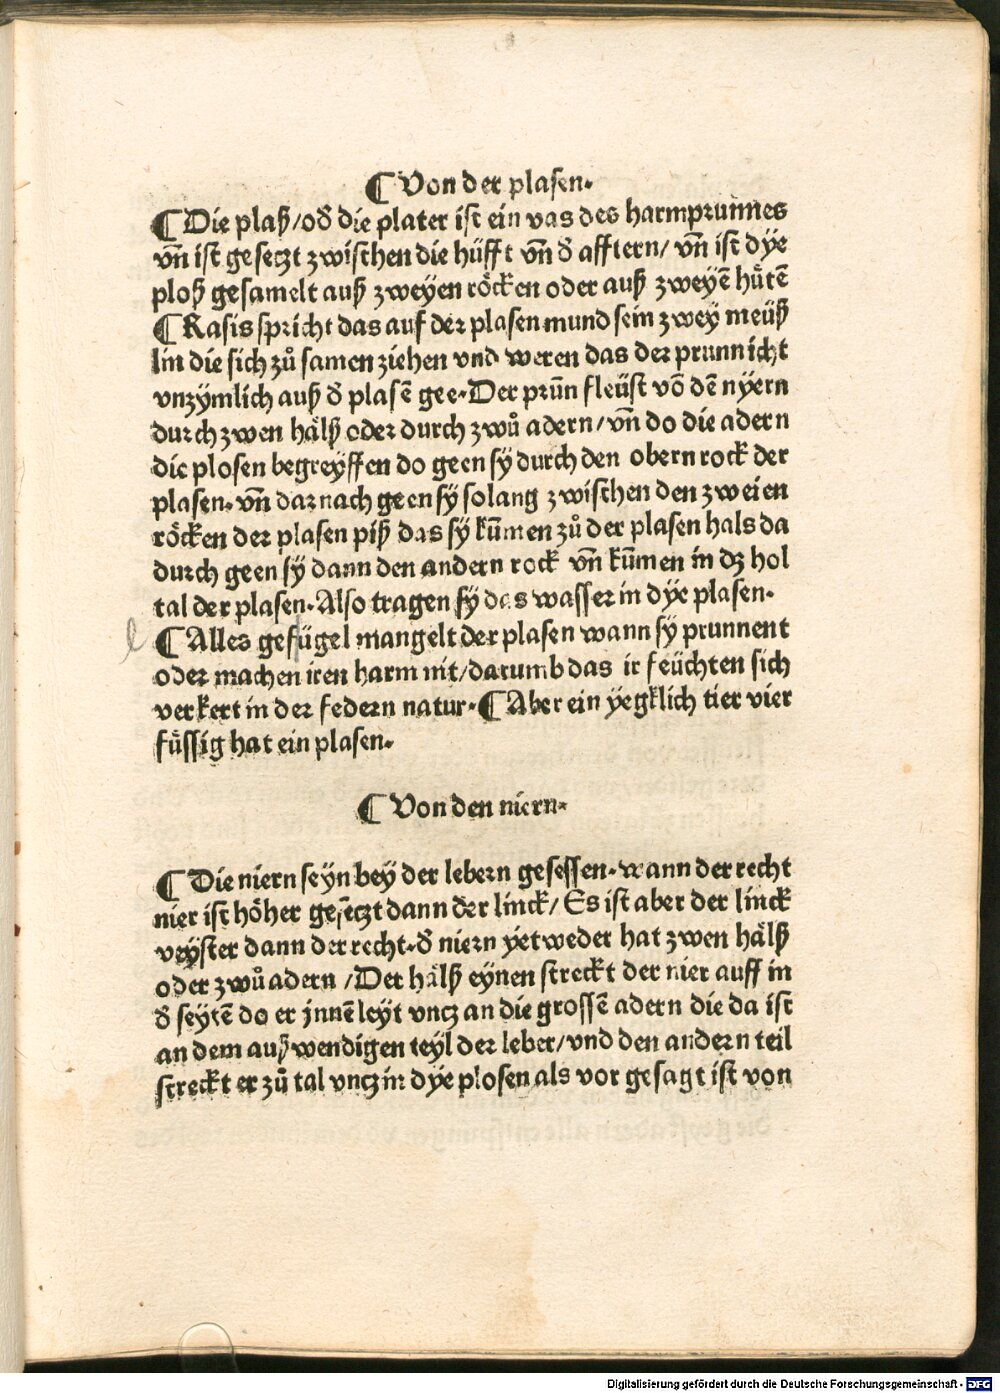 ¶ Von der plasen.
¶ Die plaß/od̄ die plater ist ein vas des harmprunnes
vn̄ ist gesetzt zwischen die hüfft vn̄ d̄ afftern/ vn̄ ist dÿe
ploß gesamelt auß zweyen röcken oder auß zweyē hütē
¶ Rasis spricht das auf der plasen mund sein zwey meüß
lin die sich zů samen ziehen vnd weren das der prunn icht
vnzymlich auß d̄ plasē gee. Der prūn fleüst vō dē nyern
durch zwen hälß oder durch zwů adern/vn̄ do die adern
die plosen begreÿffen do geen sÿ durch den obern rock der
plasen. vn̄ darnach geen sÿ solang zwischen den zweien
röcken der plasen piß das sÿ kūmen zů der plasen hals da
durch geen sÿ dann den andern rock vn̄ kūmen in dz hol
tal der plasen. Also tragen sÿ das wasser in dÿe plasen.
¶ Alles gefügel mangelt der plasen wann sÿ prunnent
oder machen iren harm nit/darumb das ir feüchten sich
verkert in der federn natur. ¶ Aber ein yegklich tier vier
füssig hat ein plasen.
¶ Von den niern.
¶ Die niern seÿn beÿ der lebern gesessen. wann der recht
nier ist höher gesetzt dann der linck/ Es ist aber der linck
veÿster dann der recht. d̄ niern ÿetweder hat zwen hälß
oder zwů adern /Der hälß eÿnen streckt der nier auff in
d̄ seytē do er jnnē leÿt vntz an die grossē adern die da ist
an dem außwendigen teÿl der leber/vnd den andern teil
streckt er zů tal vntz in dÿe plosen als vor gesagt ist von
Digitalisierung gefördert durch die Deutsche Forschungsgemeinschaft - DFG